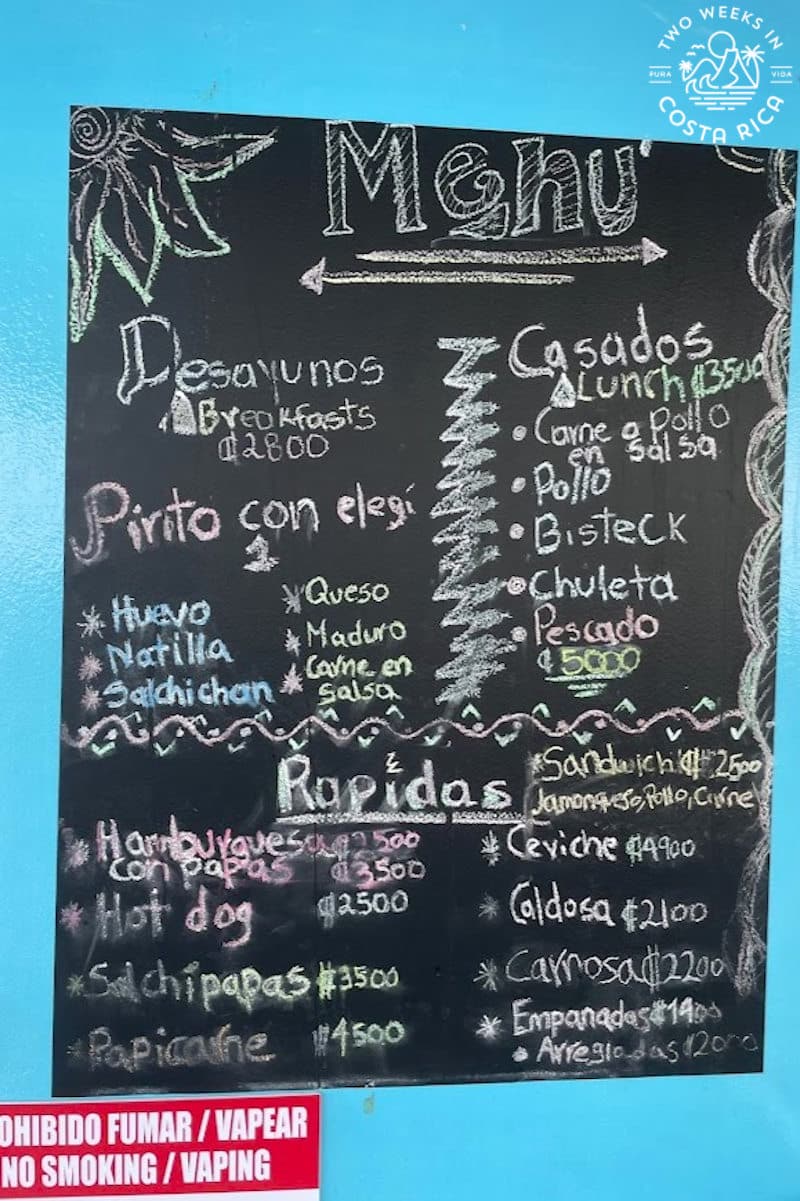 TWO WEEKS IN
PURA VIDA
COSTA RICA
Menú
Desayunos
Breakfasts
₡2800
Pinto con elegí
1
* Huevo
* Natilla
* Salchichan
* Queso
* Maduro
* Carne en
salsa
Casados
Lunch ₡3500
• Carne o pollo
en salsa
• Pollo
• Bisteck
• Chuleta
• Pescado
₡5000
Rapidas
* Sandwich ₡2500
Jamonqueso, Pollo, Carne
* Hamburguesa ₡2500
con papas ₡3500
* Hot dog ₡2500
* Salchipapas ₡3500
* Papicarne ₡4500
* Ceviche ₡4900
* Caldosa ₡2100
* Carnosa ₡2200
* Empanadas ₡1400
• Arregladas ₡2000
OHIBIDO FUMAR / VAPEAR
NO SMOKING / VAPING